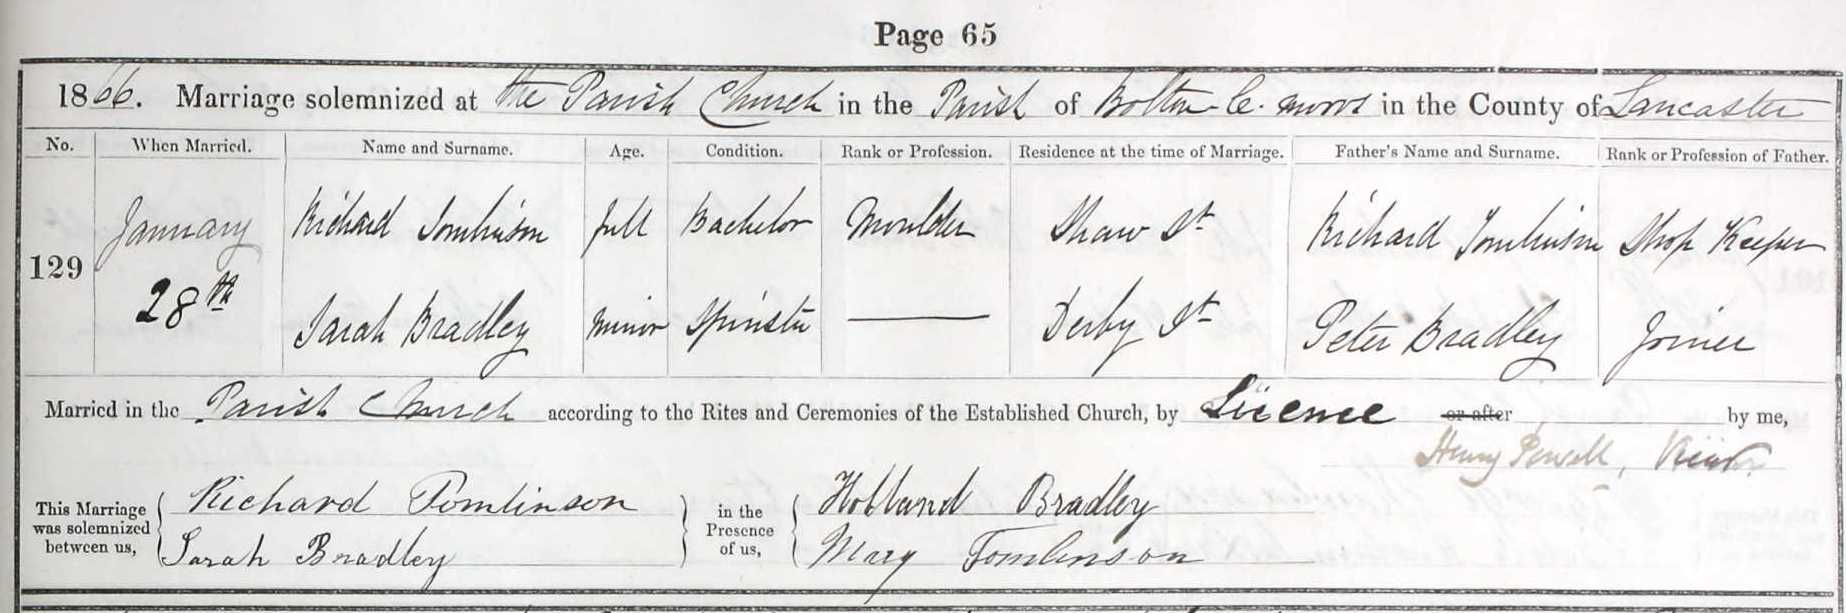 Page 65
1866. Marriage solemnized at the Parish Church in the Parish of Bolton-le-moors in the County of Lancaster
No. When Married. Name and Surname. Age. Condition. Rank or Profession. Residence at the time of Marriage. Father's Name and Surname. Rank or Profession of Father.
January Richard Tomlinson full Bachelor Moulder Shaw St Richard Tomlinson Shop Keeper
129
28th Sarah Bradley minor Spinster — Derby St Peter Bradley Joiner
Married in the Parish Church according to the Rites and Ceremonies of the Established Church, by Licence or after by me,
Henry Powell, Vicar.
This Marriage was solemnized between us, { Richard Tomlinson } in the Presence of us, { Holland Bradley
Sarah Bradley Mary Tomlinson